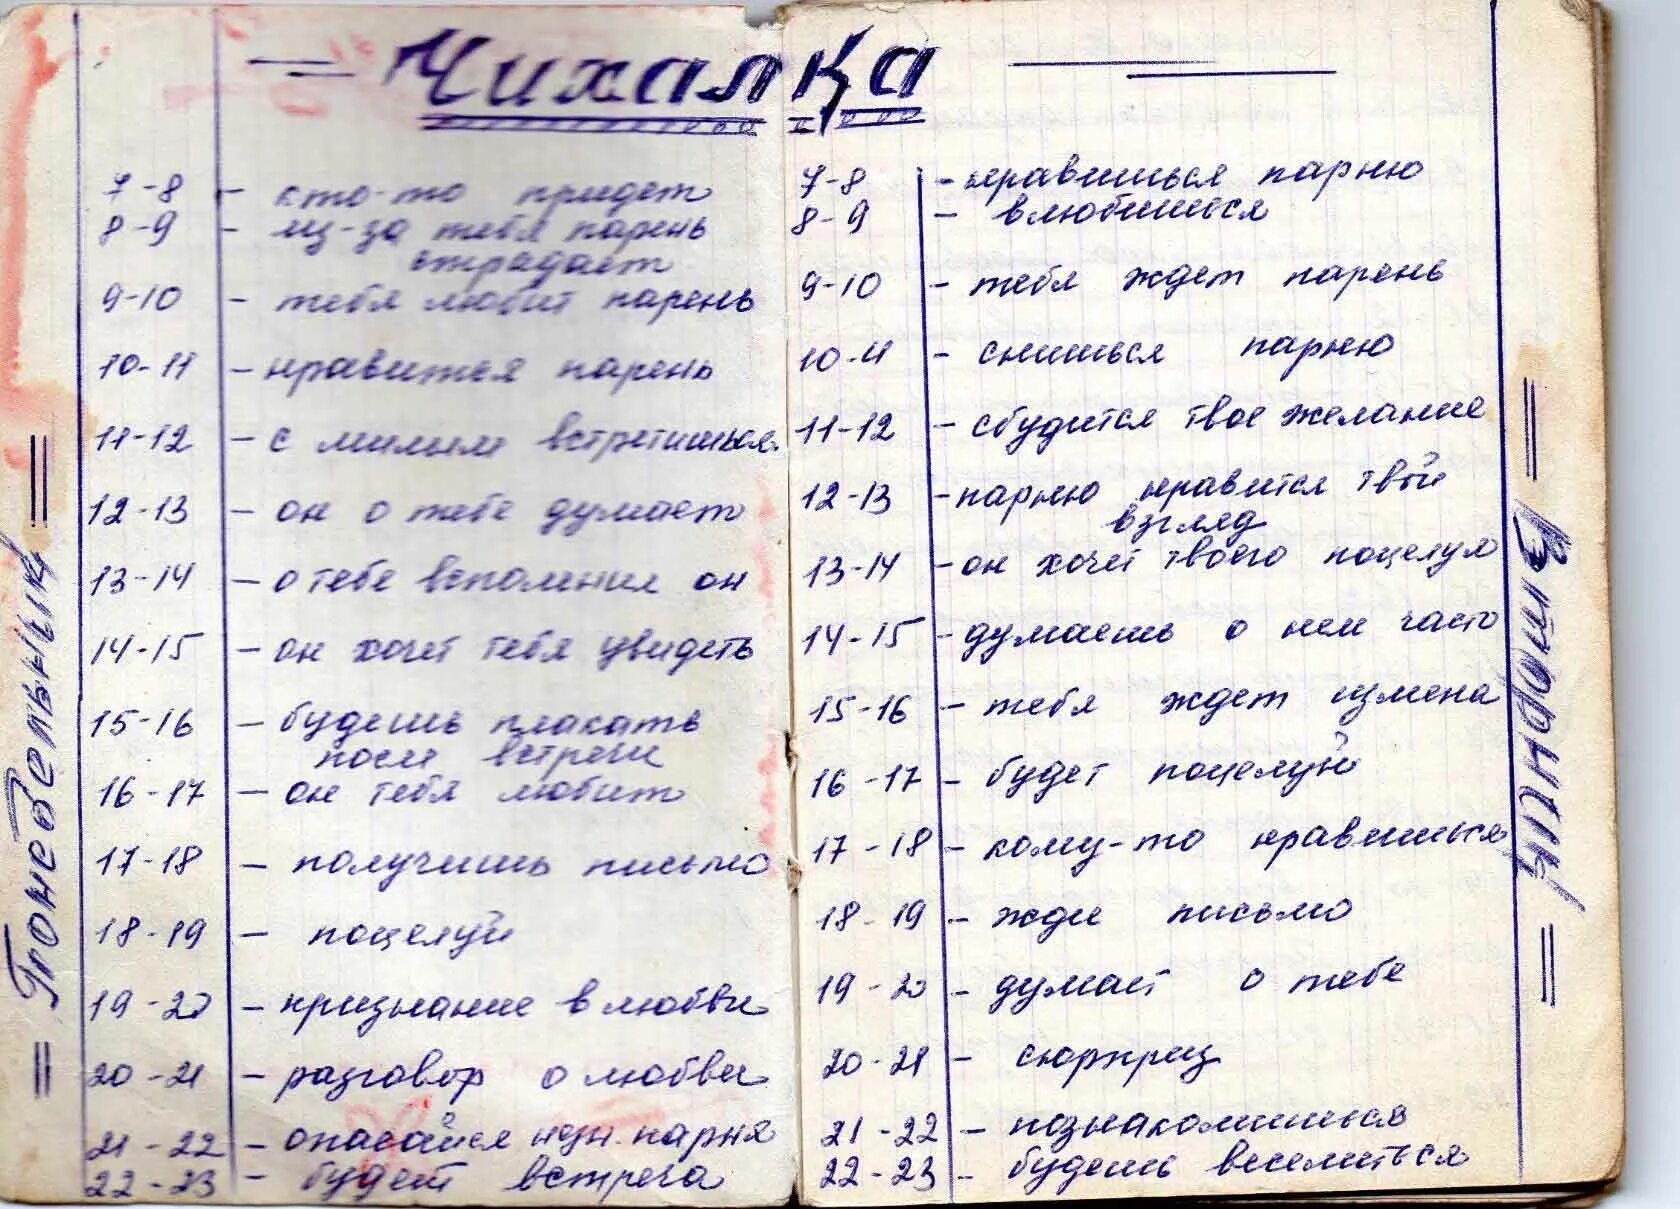 Чихалка
Понедельник
7-8 - кто-то придет
8-9 - из-за тебя парень
страдает
9-10 - тебя любит парень
10-11 - нравится парень
11-12 - с милым встретишься
12-13 - он о тебе думает
13-14 - о тебе вспомнил он
14-15 - он хочет тебя увидеть
15-16 - будешь плакать
после встречи
16-17 - он тебя любит
17-18 - получишь письмо
18-19 - поцелуй
19-20 - признание в любви
20-21 - разговор о любви
21-22 - опасайся незн. парня
22-23 - будет встреча
7-8 - нравишься парню
8-9 - влюбишься
9-10 - тебя ждет парень
10-11 - снишься парню
11-12 - сбудется твое желание
12-13 - парню нравится твой
взгляд
13-14 - он хочет твоего поцелуя
14-15 - думаешь о нем часто
15-16 - тебя ждет измена
16-17 - будет поцелуй
17-18 - кому-то нравишься
18-19 - жди письмо
19-20 - думает о тебе
20-21 - сюрприз
21-22 - познакомишься
22-23 - будешь веселиться
Вторник